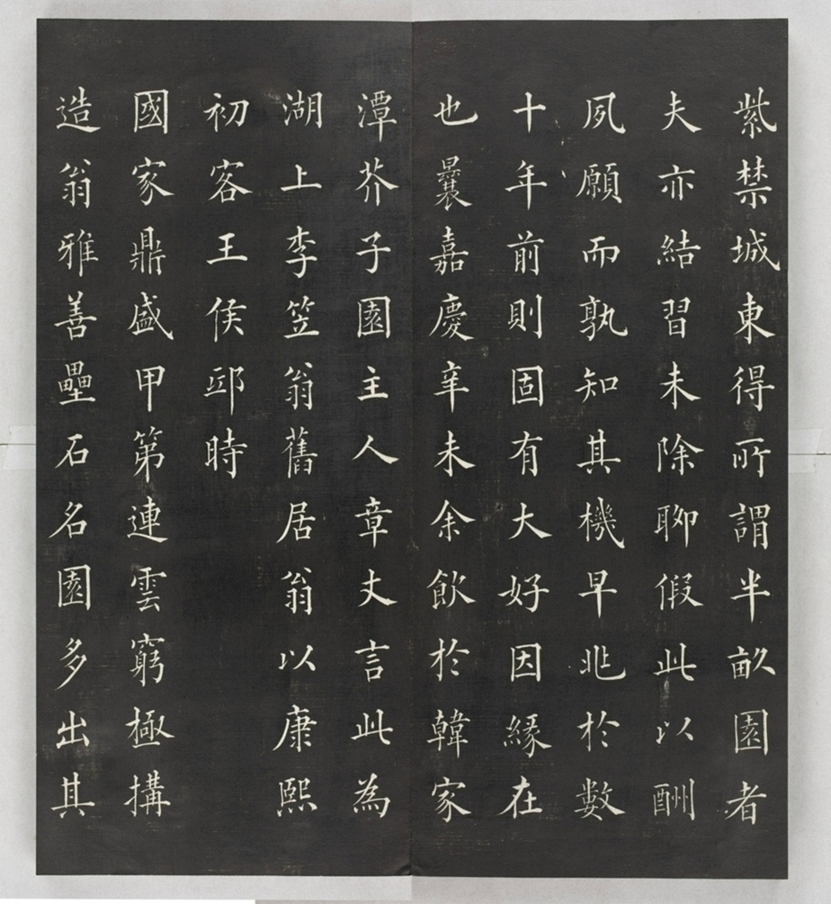 紫禁城東得所謂半畝園者
夫亦結習未除聊假此以酬
夙願而孰知其機早兆於數
十年前則固有大好因緣在
也曩嘉慶辛未余飲於韓家
潭芥子園主人章丈言此為
湖上李笠翁舊居翁以康熙
初客王侯邸時
國家鼎盛甲第連雲窮極搆
造翁雅善壘石名園多出其